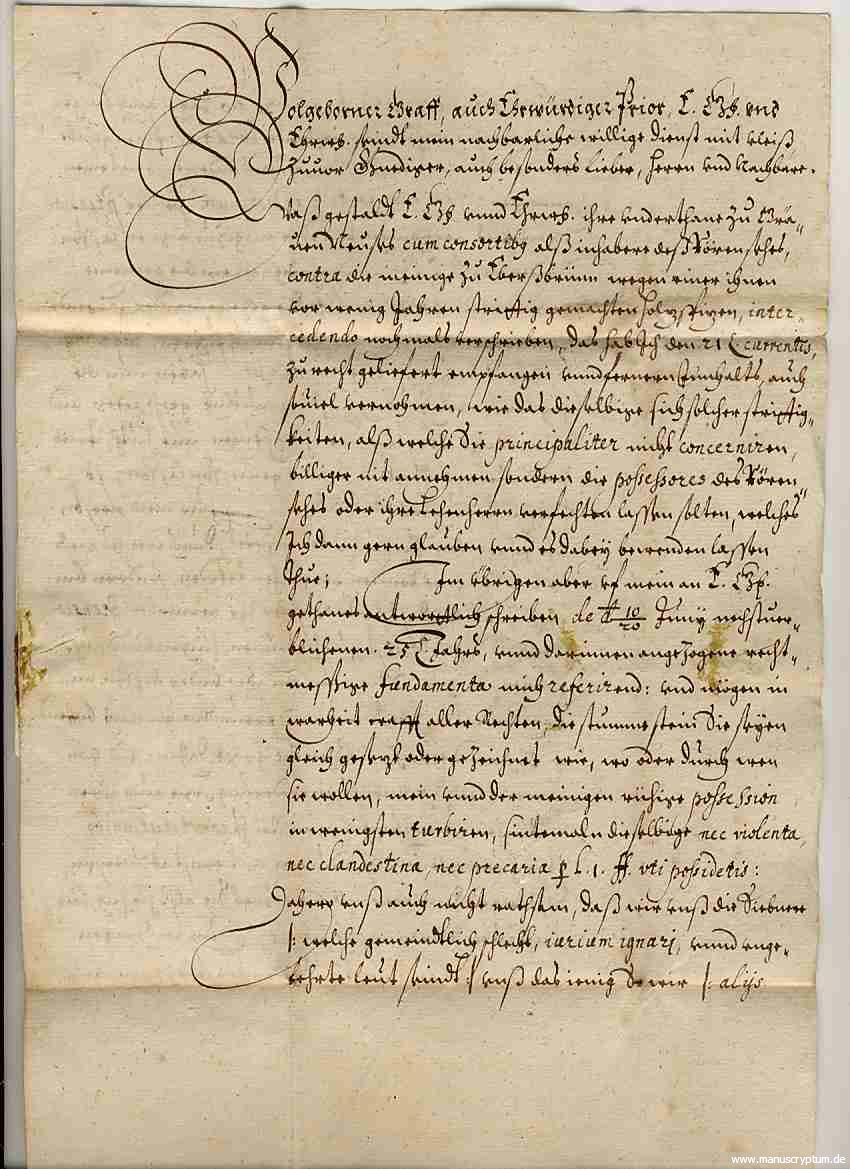 Wolgeborner Graff, auch Ehrwürdiger Prior, E. Gd. vnd
Ehrwd. seindt mein nachbarliche willige dienst mit vleiß
zuuor Gnediger, auch besonders lieber, herrn vnd Nachbare.
Waß gestaldt E. Gd. vnnd Ehrwd. ihre vnderthane zu Grä-
uen Neuses cum consortibq alß inhabere deß Sehes,
contra die meinige zu Ebersbrunn wegen einer ihnen
vor wenig Jahren strittig gemachten holzspizen, inter-
cedendo nochmals verschrieben, das hab Ich den 21 currentis,
zu recht geliefert empfangen vnnd fernern Innhalts, auch
souiel vernohmen, wie das dieselbige sich solcher strittig-
keiten, alß welche Sie principaliter nicht concerniren,
billiger nit annehmen sondern die possessores des
Sehes oder ihre Lehenherrn verfechten lassen solten, welches
Ich dann gern glauben vnnd es dabey bewenden lassen
thue; Im übrigen aber vf mein an E. Gd.
gethanes antwortlich schreiben de 10/20 Juny nechstuer-
blichenen 25 Jahrs, vnnd darinnen angezogene recht-
messige fundamenta mich referirend: vnd mögen in
warheit crafft aller Rechten, die stumme stein Sie seyen
gleich gesezt oder gezeichnet wie, wo oder durch wen
sie wollen, mein vnnd der meinigen rühige possession
in wenigsten turbiren, sintemaln dieselbige nec violenta,
nec clandestina, nec precaria p l. 1. ff. vti possidetis:
Dahero vnß auch nicht rathsam, daß wir vnß die Siebnere
/: welche gemeindtlich schlecht, iurium ignarj, vnnd unge-
lehrte leut seindt :/ vnß das ienig So wir /: alijs
www.manuscryptum.de